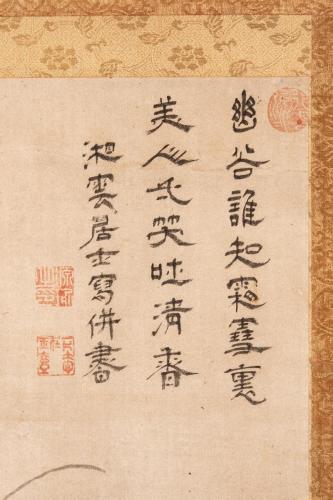 幽谷誰知霜雪裏
美人笑吐清香
湘雲居士寫併書